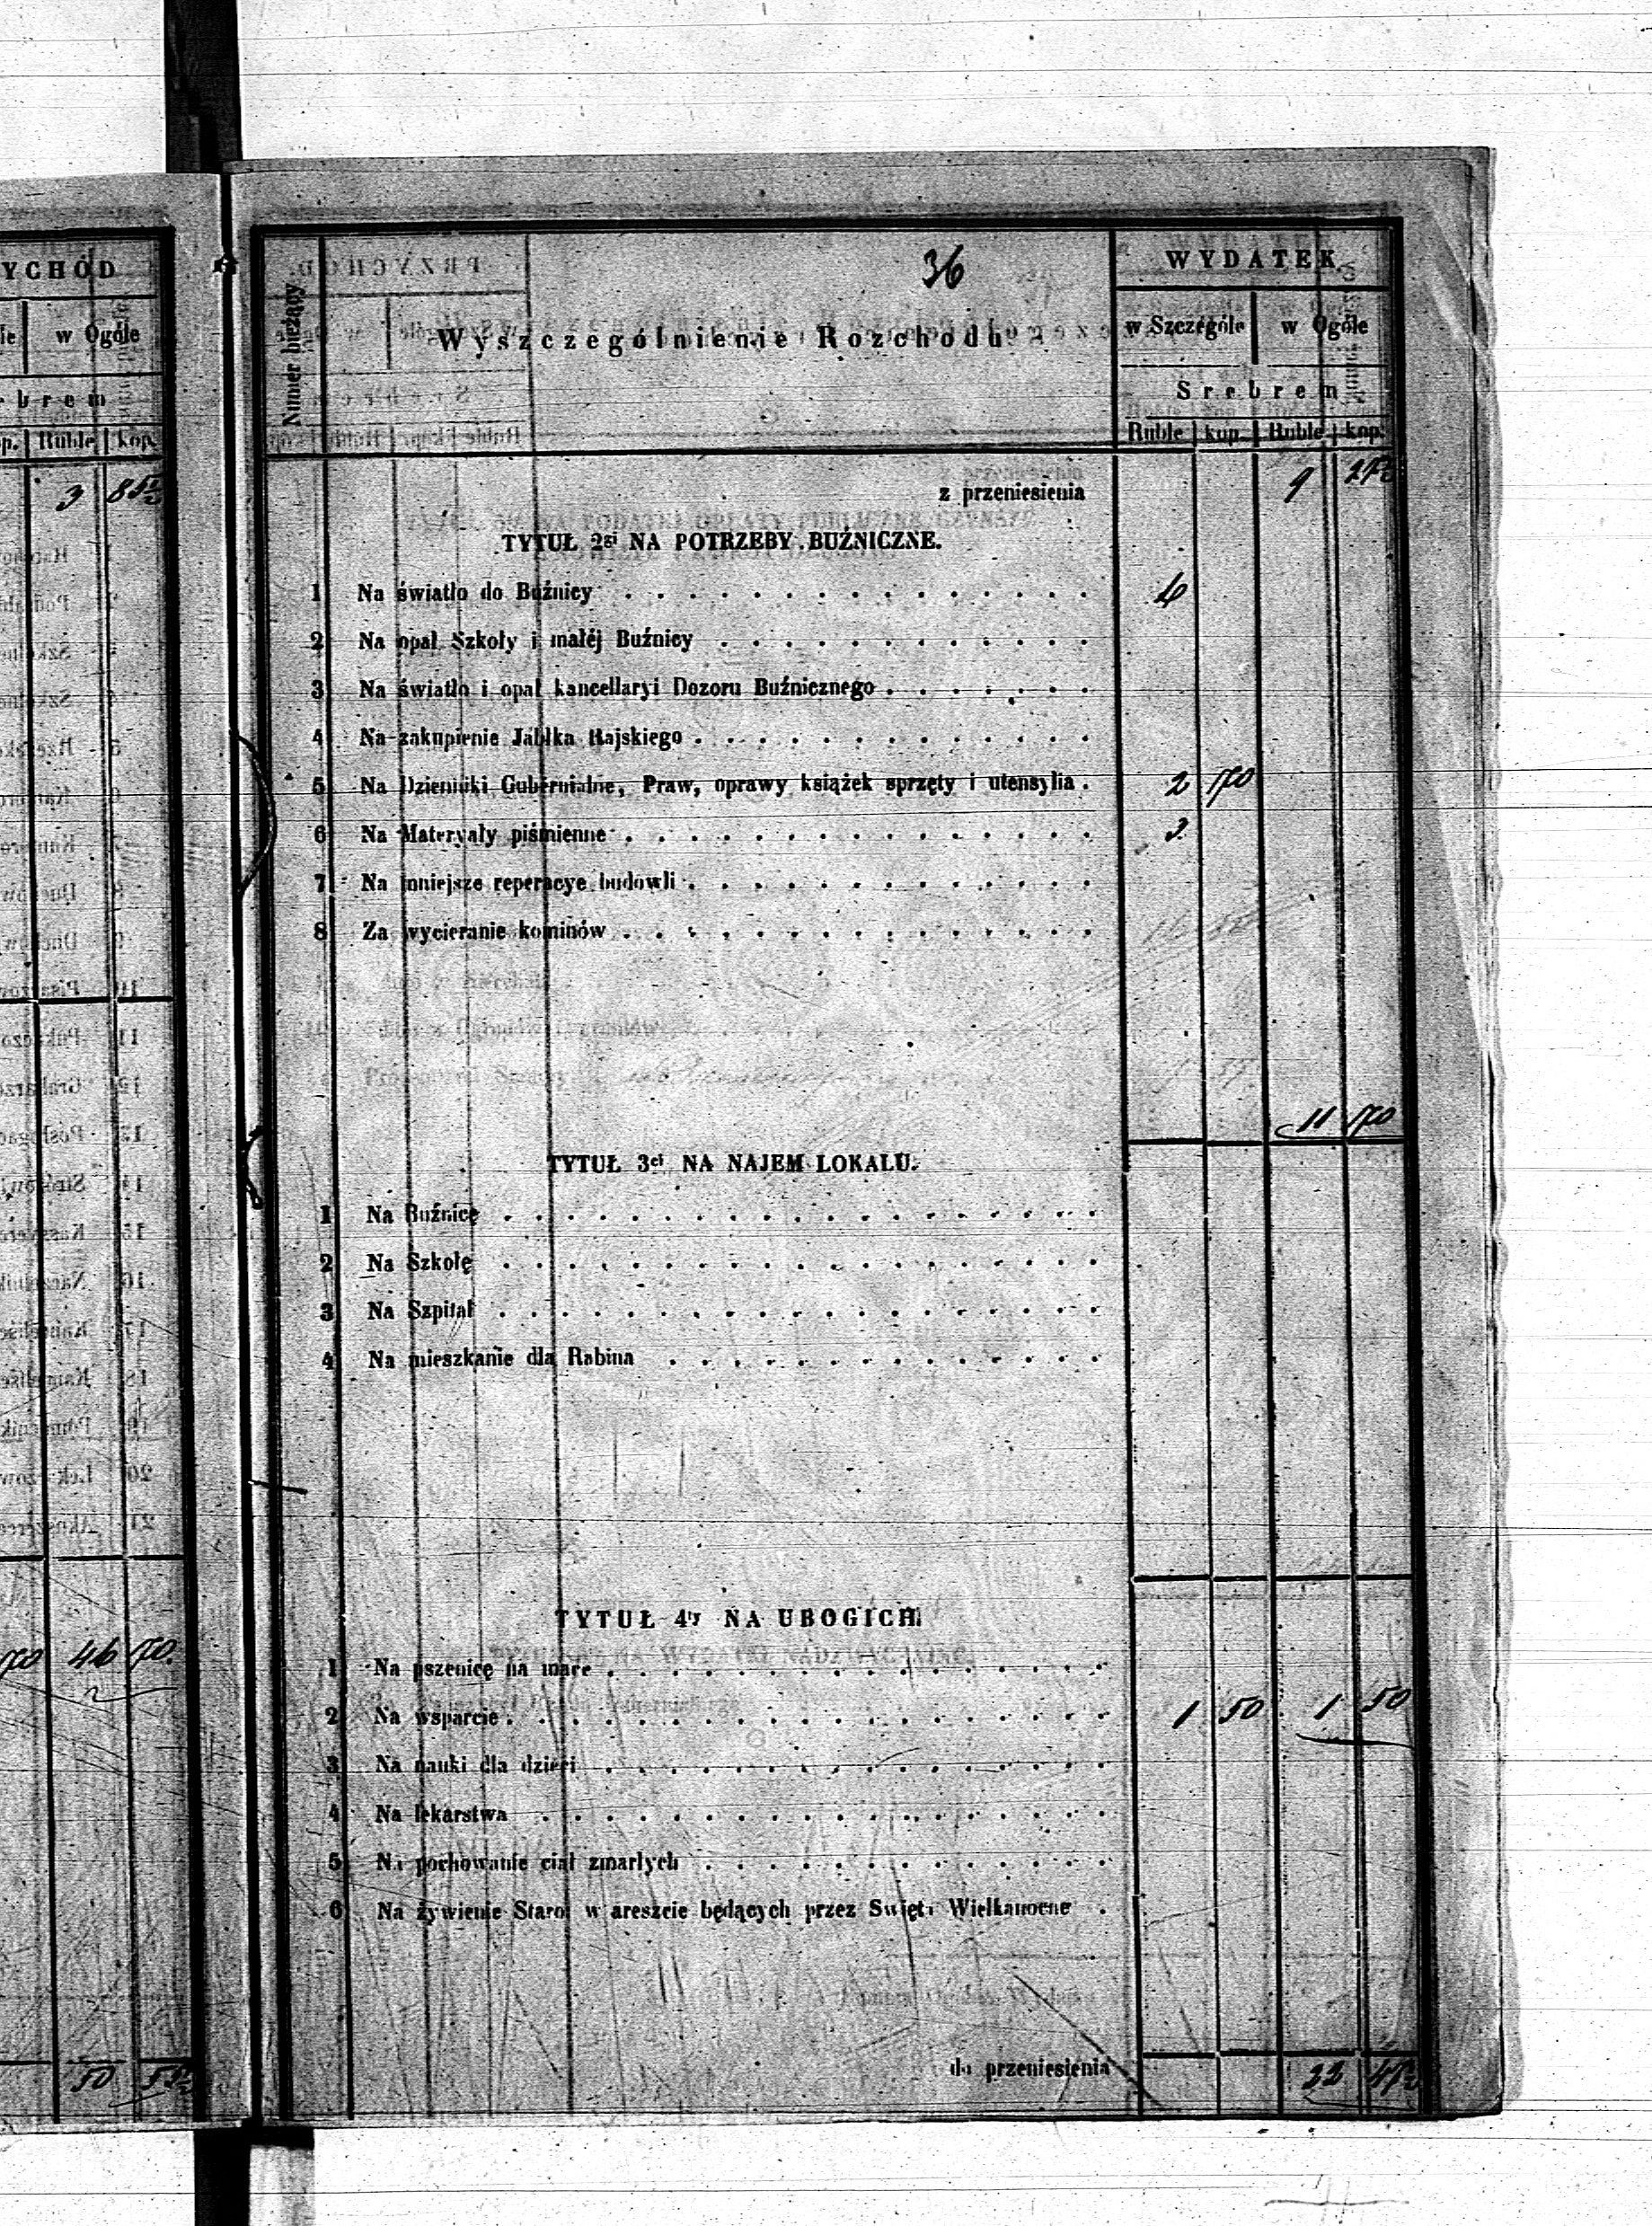 YCHÓD
w Ogóle
brem
Ruble kop.
3 85½
46 70
50 55½
36
Numer bieżący
Wyszczególnienie Rozchodu
WYDATEK
w Szczególe w Ogóle
Srebrem
Ruble kop. Ruble kop.
z przeniesienia 9 27½
TYTUŁ 2gi NA POTRZEBY BUŹNICZNE.
1 Na światło do Buźnicy 6
2 Na opał Szkoły i małéj Buźnicy
3 Na światło i opał kancellaryi Dozoru Buźnicznego
4 Na zakupienie Jabłka Rajskiego
5 Na Dzienniki Gubernialne, Praw, oprawy książek sprzęty i utensylia 2 70
6 Na Materyały piśmienne 3
7 Na mniejsze reperacye budowli
8 Za wycieranie kominów
11 70
TYTUŁ 3ci NA NAJEM LOKALU.
1 Na Buźnicę
2 Na Szkołę
3 Na Szpital
4 Na mieszkanie dla Rabina
TYTUŁ 4ty NA UBOGICH
1 Na pszenicę na mace
2 Na wsparcie 1 50 1 50
3 Na nauki dla dzieci
4 Na lekarstwa
5 Na pochowanie ciał zmarłych
6 Na żywienie Staroz w areszcie będących przez Święta Wielkanocne
do przeniesienia 22 47½